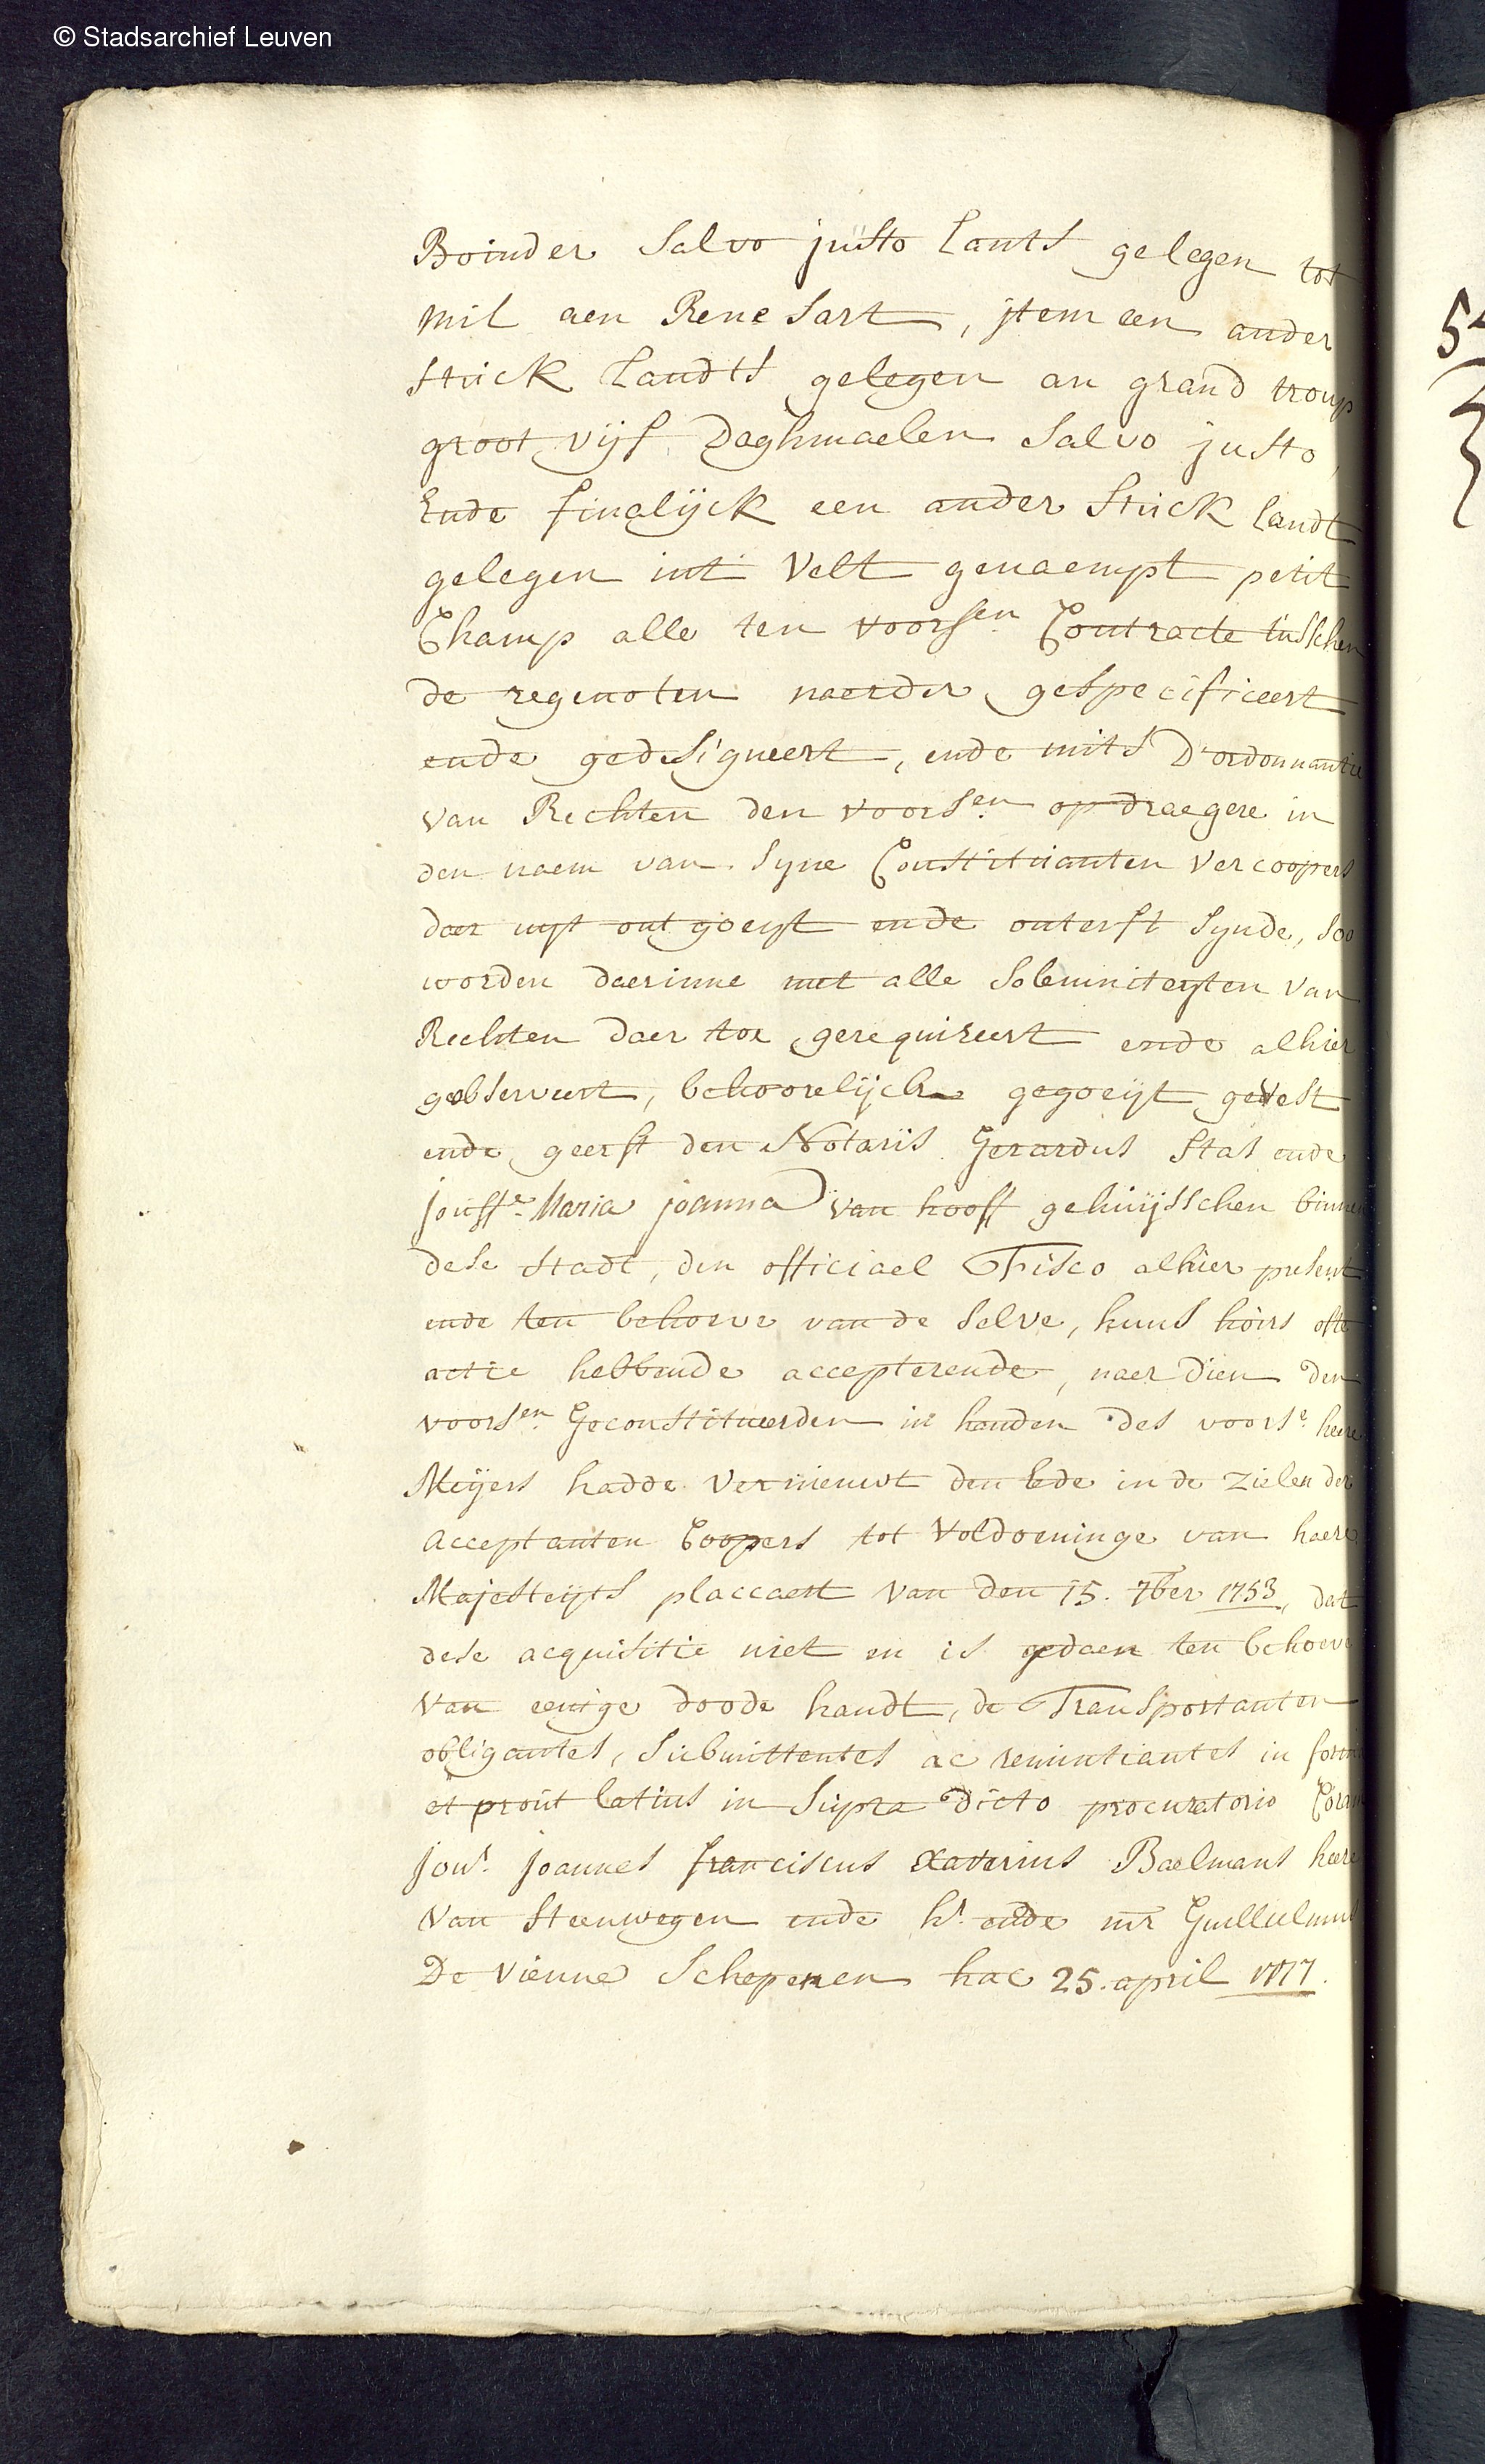 © Stadsarchief Leuven
Boinder Salvo justo Lants gelegen tot
Mil aen Rene Sart, jtem een ander
Stuck Landts gelegen an grand troup
groot vijf Daghmaelen Salvo justo,
Ende finalijck een ander Stuck landt
gelegen int Velt genaempt petit
Champ alle ten voorsen Contracte tusschen
de regenoten naerder gespecificeert
ende gedesigneert, ende mits D'ordonnantie
van Rechten den voorsen opdraegere in
den naem van Syne Constituanten Vercoopers
daer uyt ontgoeyt ende onterft Synde, Soo
worden daerinne met alle Solemniteyten van
Rechten daer toe gerequireert ende alhier
geobserveert, behoorelijck gegoeijt gevest
ende geerft den Notaris Gerardus Stas ende
jouffe Maria joanna van hooff gehuijsschen binnen
dese Stadt, den officiael Fisco alhier present
ende ten behoeve van de Selve, huns hoirs ofte
actie hebbende accepterende, naer dien den
voorsen Geconstitueerden in handen des voorse heere
Meijers hadde Vernieuwt den Eede in de Zielen der
acceptanten Coopers tot Voldoeninge van haere
Majesteyts placcaert Van den 15. 7ber 1753, dat
dese acquisitie niet en is gedaen ten behoeve
Van eenige doode handt, de Transportanten
obligantes, Submittentes ac renuntiantes in forma
et prout latius in Supra dicto procuratorio Coram
jour. joannes franciscus Xaverius Baelmans heere
Van Steenwegen ende hr. ende mr Guillielmus
De Vienne Schepenen hac 25. april 1777.
5